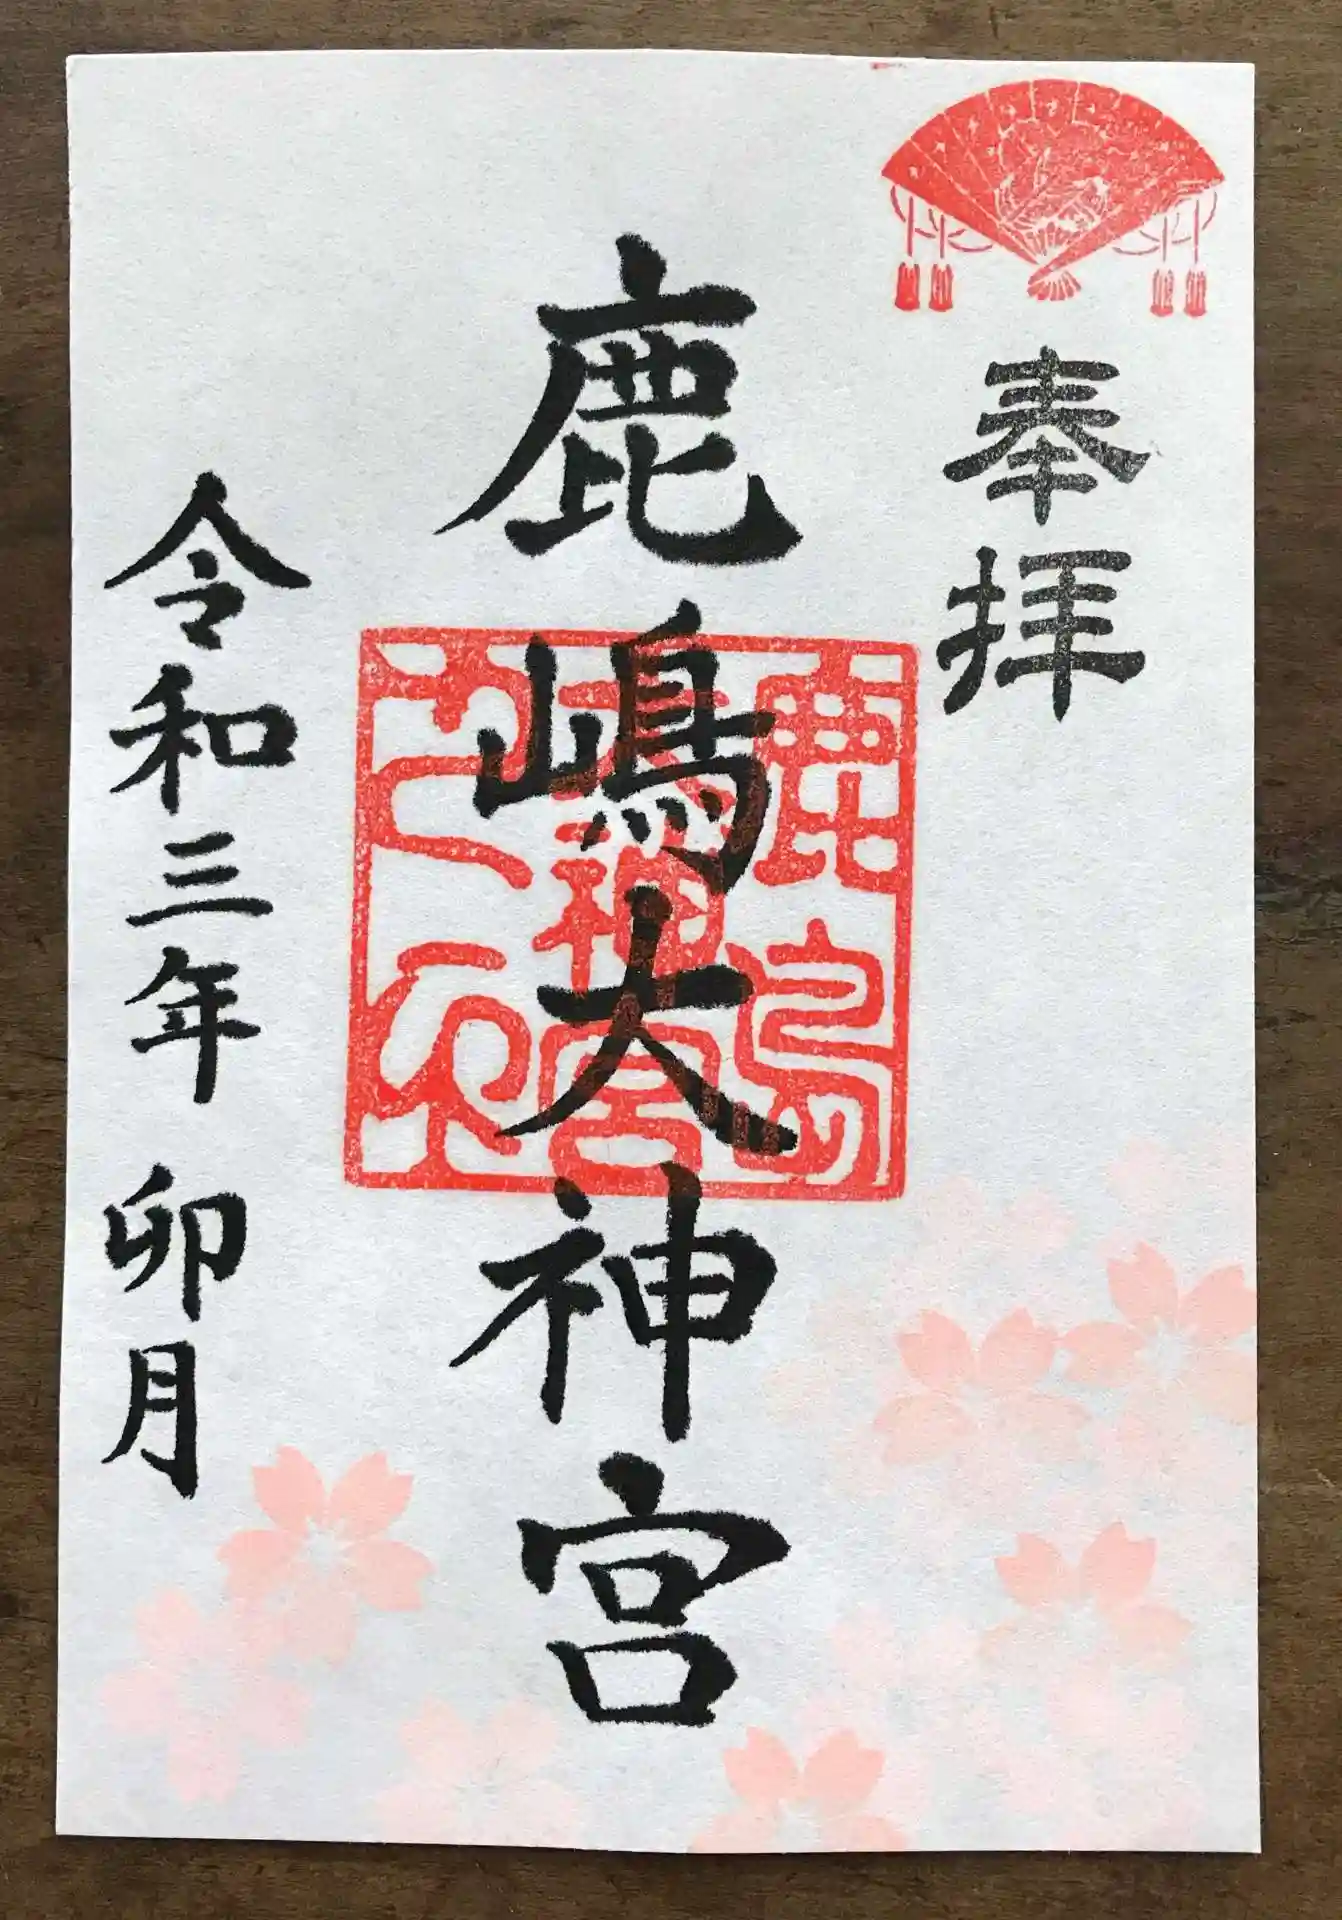 奉拝
鹿嶋大神宮
鹿島
大神宮
之印
令和三年 卯月